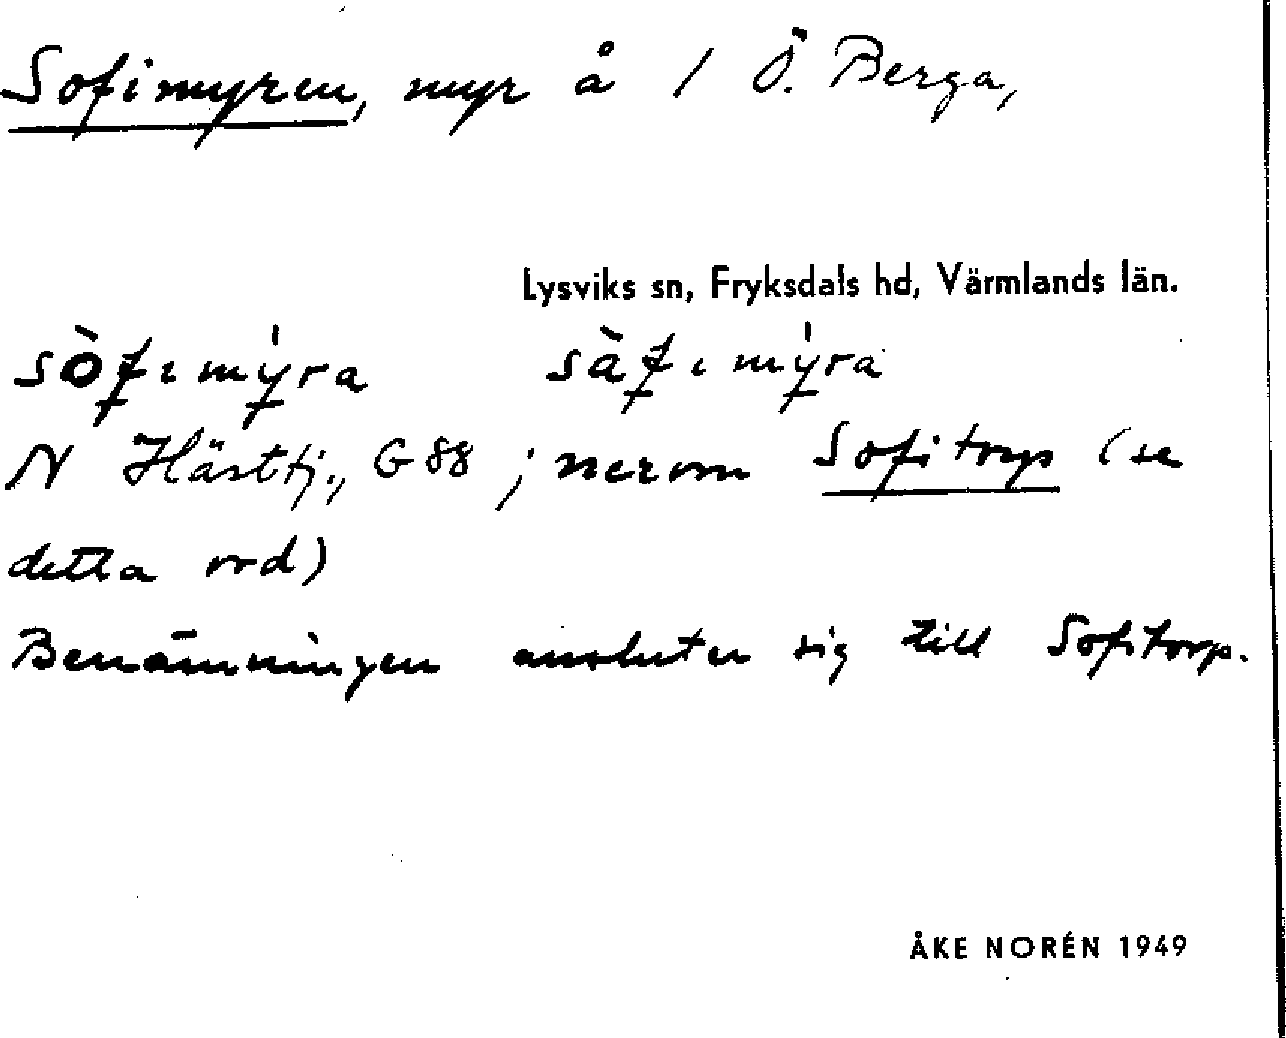 Sofimyren, myr å 1 Ö. Berga,
Lysviks sn, Fryksdals hd, Värmlands län.
sòfımýra sàfımýra
N Hästtj., G 88 ; nerom Sofitorp (se
detta ord)
Benämningen ansluter sig till Sofitorp.
ÅKE NORÉN 1949